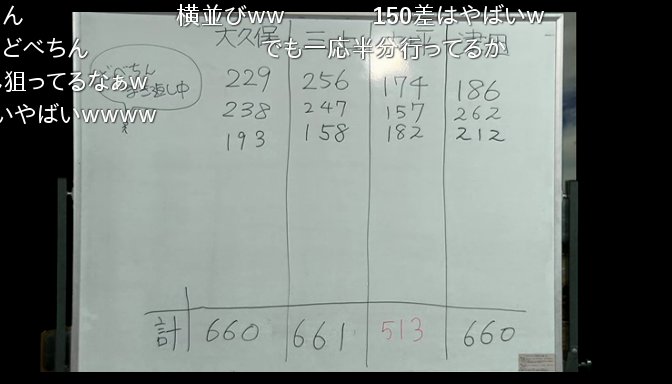 ん 横並びww 150差はやばいw
どべちん でも一応半分行ってるか
狙ってるなぁw
いやばいwwww
大久保
どべちん
229 256 174 186
238 247 157 262
193 158 182 212
計 660 661 513 660